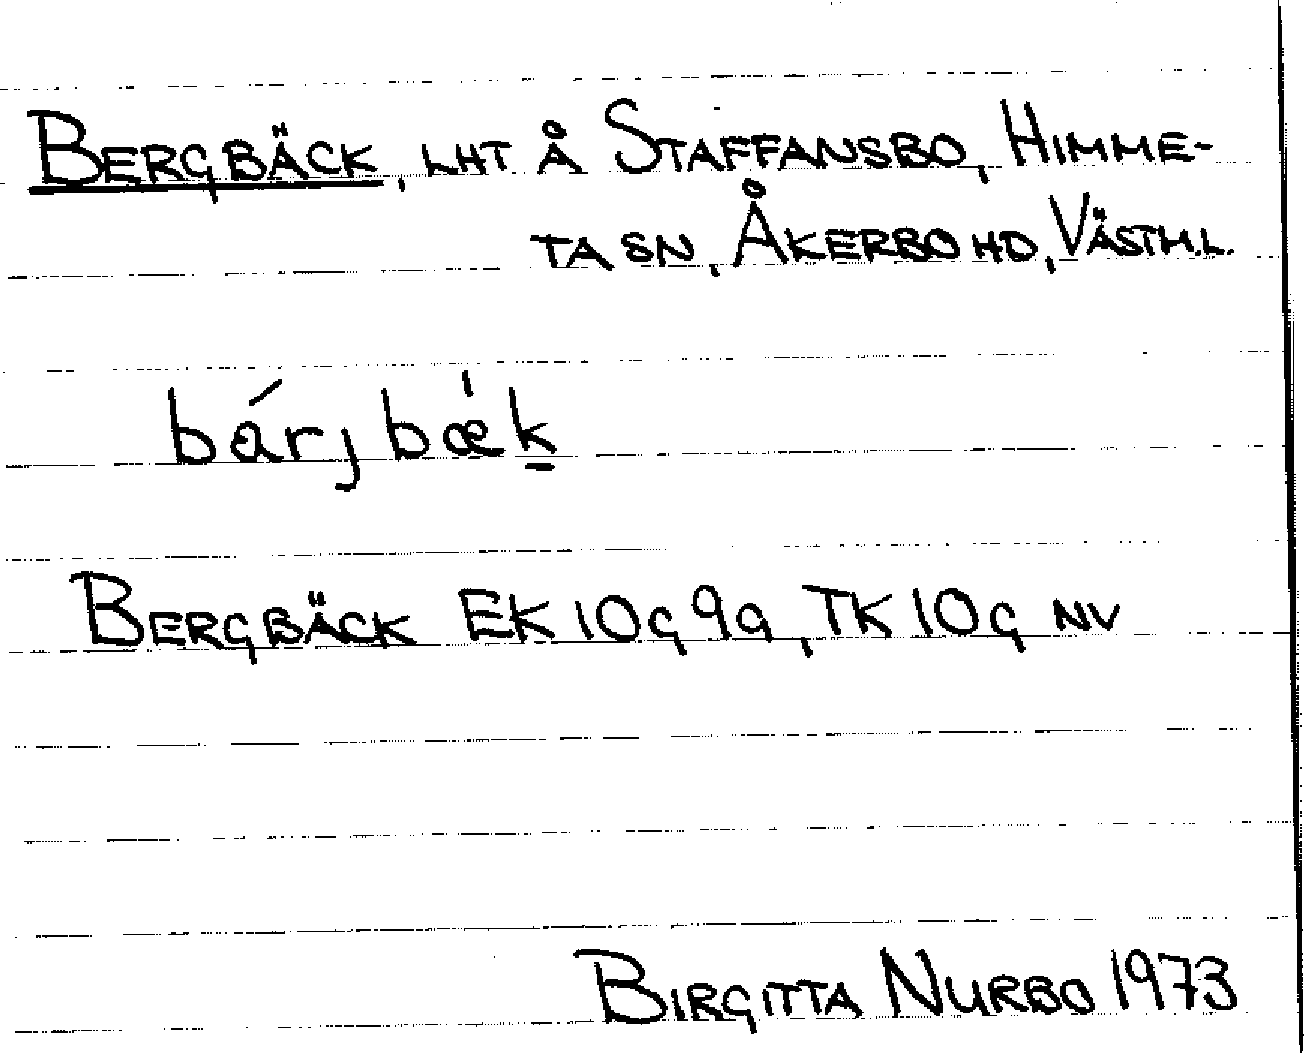 BERGBÄCK, LHT Å STAFFANSBO, HIMME-
TA SN, ÅKERBO HD, VÄSTM.L.
bárjbæ̍k̠
BERGBÄCK EK 10G 9a, TK 10G NV
BIRGITTA NURBO 1973